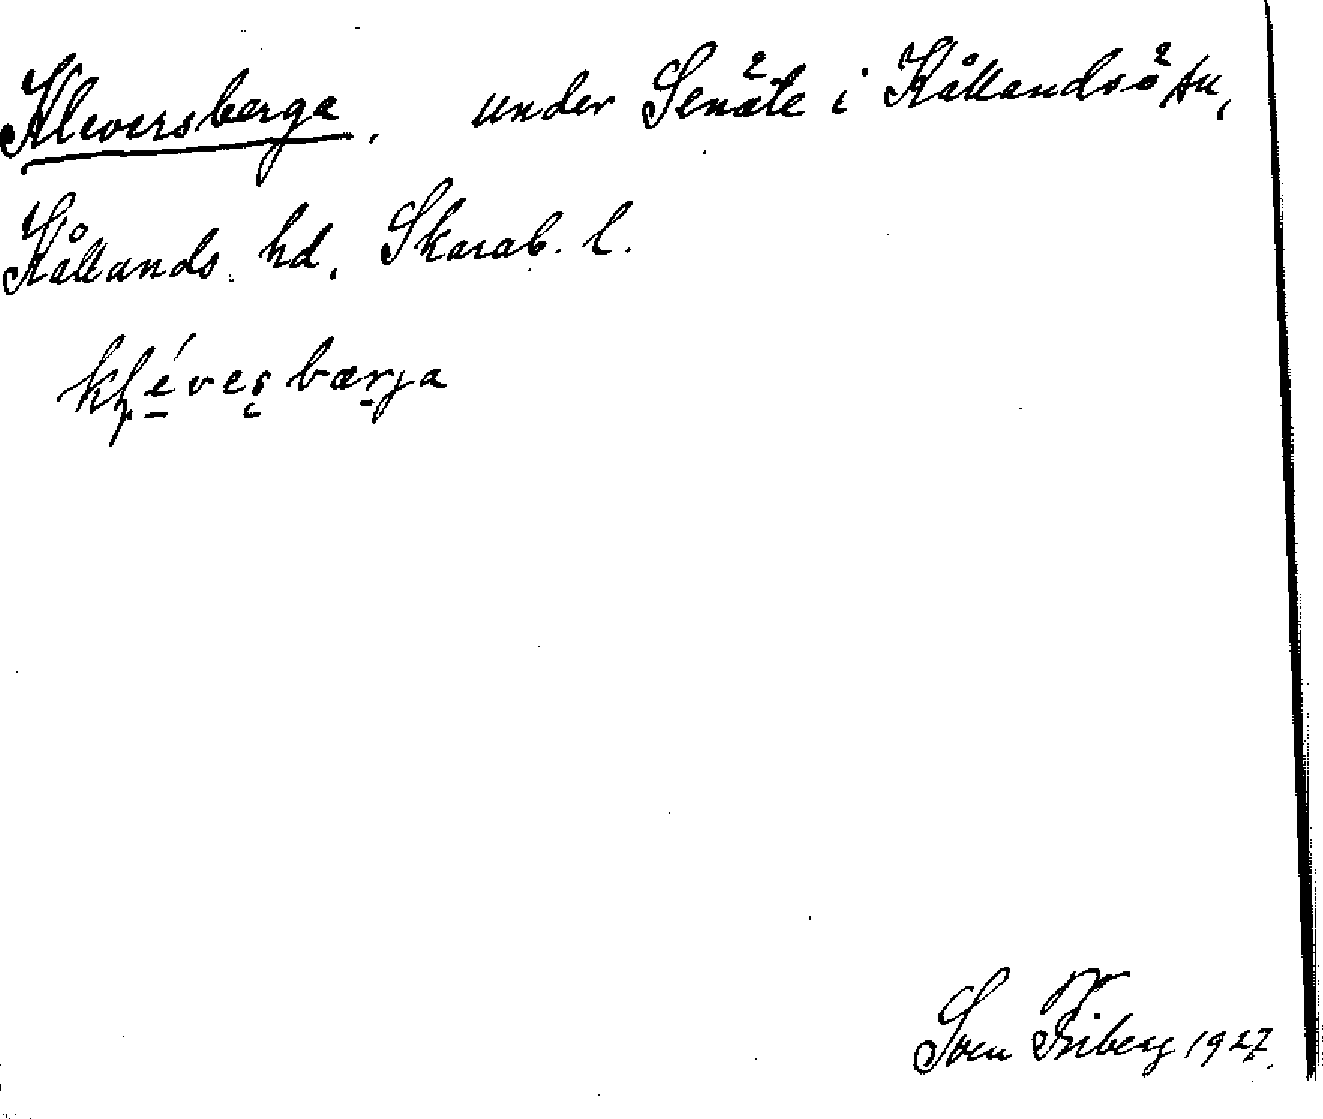 Kleversberga, under Senäte i Kållandsö sn,
Kållands hd, Skarab. l.
kḷévesbærja
Sven Friberg 1927.